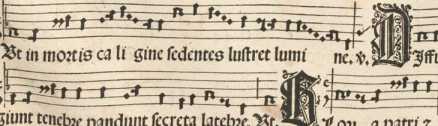 Vt in mortis ca li gine sedentes lustret lumi ne. v. Diffu
giunt tenebre pandunt secreta latebre. Vt. G lori a patri z